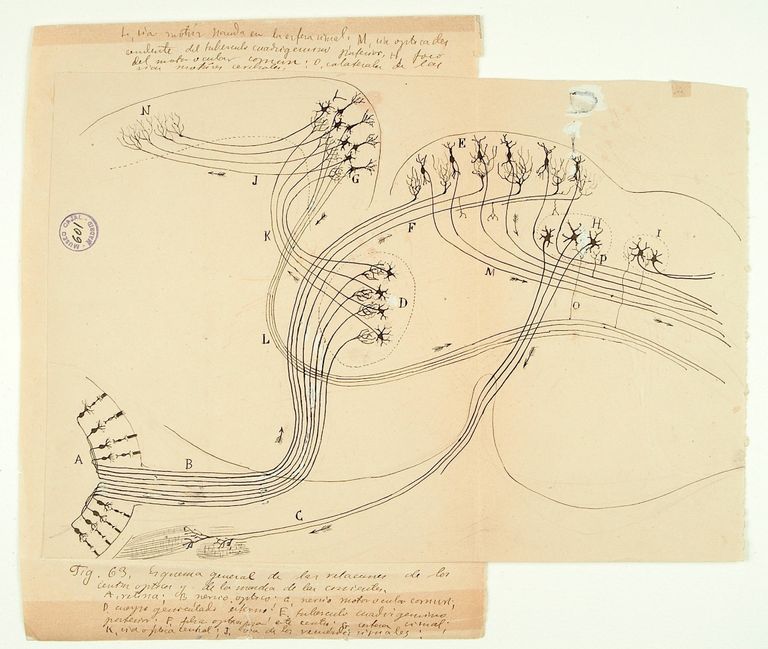 L, via motriz nacida en la esfera visual; M, via optica des
cendente del tuberculo cuadrigemino posterior; H, foco
del motor ocular comun; O, colaterales de las
vias motrices cerebrales.
N
L
G
J
K
L
E
F
H
I
P
M
D
O
A
B
C
MUSEO CAJAL
109
MADRID
Fig. 63. Esquema general de las relaciones de los
centros opticos y de la marcha de las corrientes.
A, retina; B nervio optico; C, nervio motor ocular comun;
D cuerpo geniculado externo; E, tuberculo cuadrigemino
posterior; F, fibra optica para este centro; G, corteza visual;
K, via optica central; J, via de los recuerdos visuales;